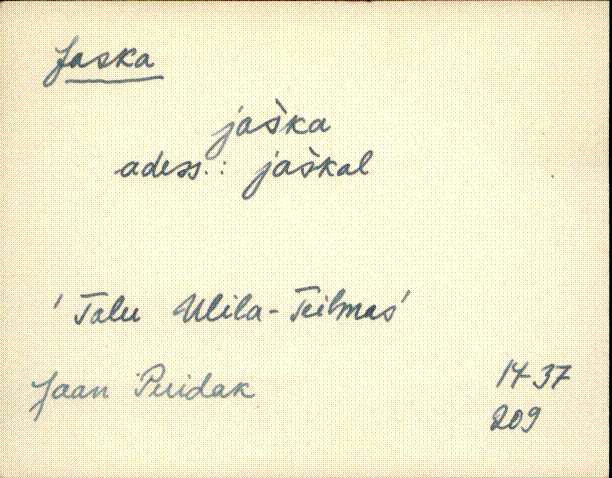 Jaska
jaška
adess.: jaškal
'Talu Ulila-Teilmas'
Jaan Puidak
14-37
209